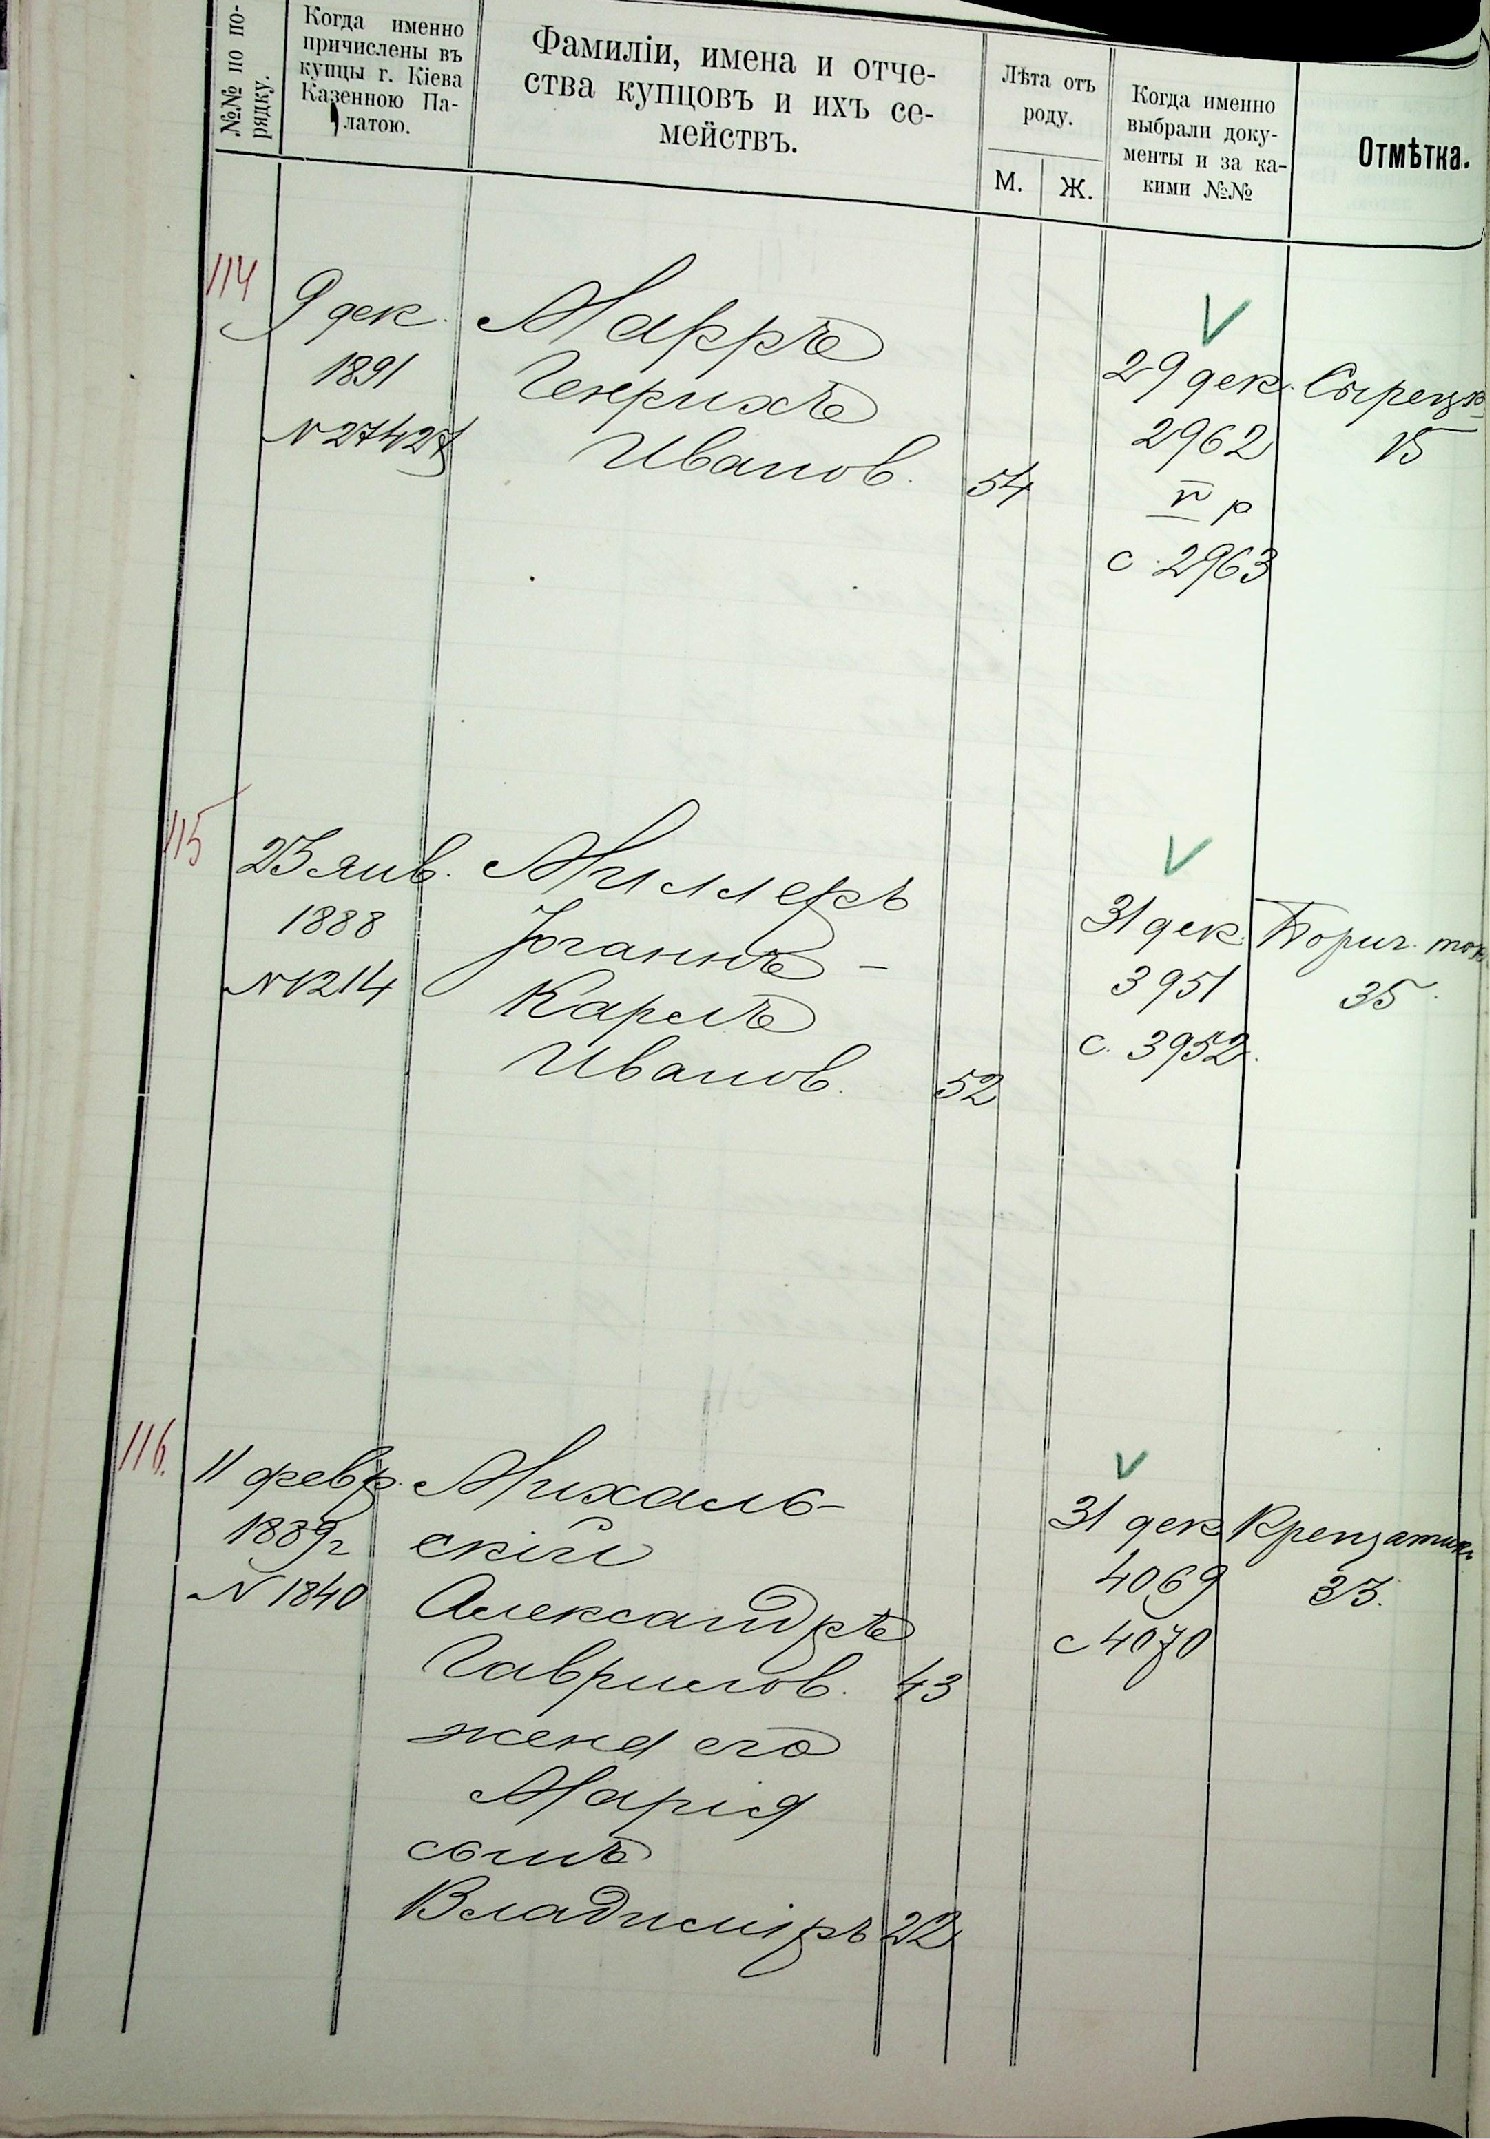 №№ по по-
рядку.
Когда именно
причислены въ
купцы г. Кіева
Казенною Па-
латою.
Фамиліи, имена и отче-
ства купцовъ и ихъ се-
мействъ.
Лѣта отъ
роду.
М.
Ж.
Когда именно
выбрали доку-
менты и за ка-
кими №№
Отмѣтка.
114
9 дек.
1891
№ 27427
Марръ
Генрихъ
Иванов.
54
29 дек.
2962
р
с. 2963
Сырецк
15
115
25 янв.
1888
№ 1214
Миллеръ
Іоганнъ -
Карлъ
Иванов.
52
31 дек.
3951
с. 3952.
Борич. ток
35.
116.
11 февр.
1889 г
№ 1840
Михаль-
скій
Александръ
Гаврилов.
43
жена его
Марія
сынъ
Владиміръ
22
31 дек
4069
с 4070
Крещатик
33.